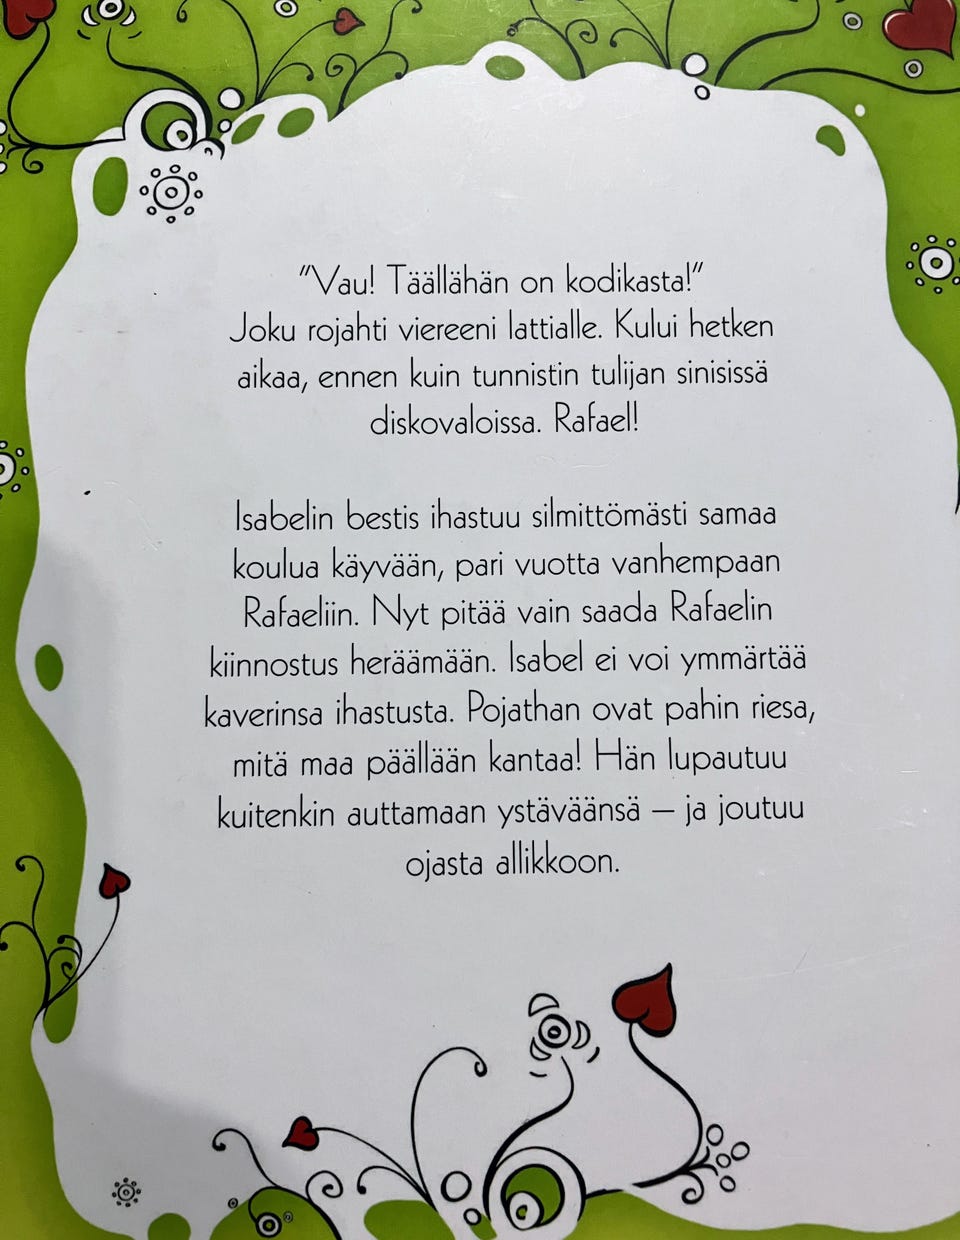 "Vau! Täällähän on kodikasta!"
Joku rojahti viereeni lattialle. Kului hetken
aikaa, ennen kuin tunnistin tulijan sinisissä
diskovaloissa. Rafael!
Isabelin bestis ihastuu silmittömästi samaa
koulua käyvään, pari vuotta vanhempaan
Rafaeliin. Nyt pitää vain saada Rafaelin
kiinnostus heräämään. Isabel ei voi ymmärtää
kaverinsa ihastusta. Pojathan ovat pahin riesa,
mitä maa päällään kantaa! Hän lupautuu
kuitenkin auttamaan ystäväänsä – ja joutuu
ojasta allikkoon.